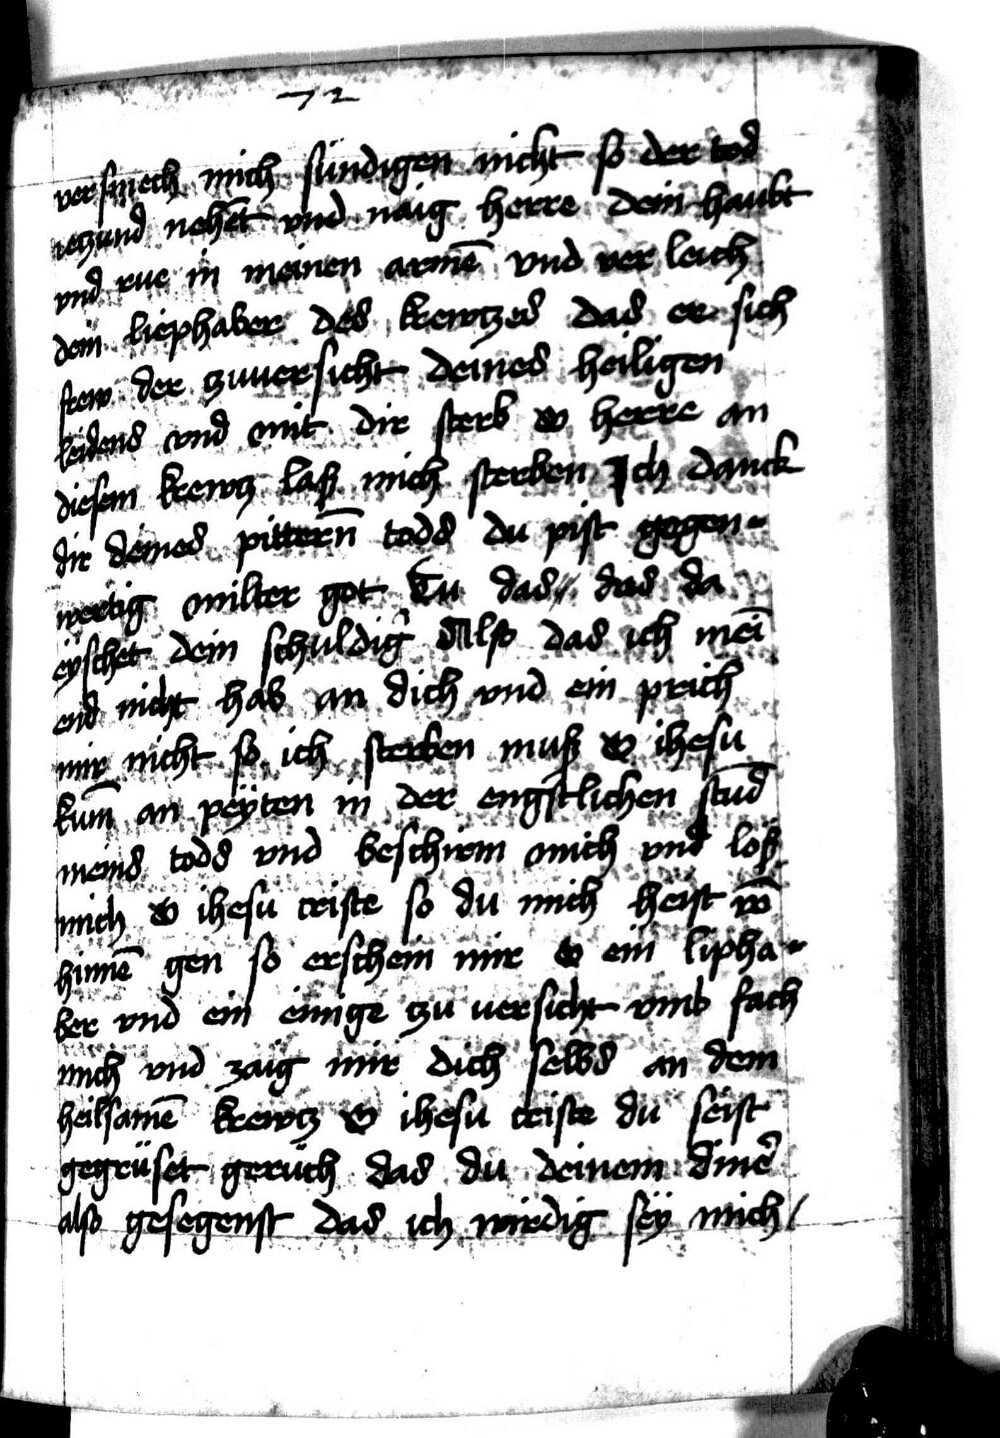 72
versmech mich sündigen nicht so der tod
yetzund nehēt vnd naig herre dein haubt
vnd rue in meinen armē vnd ver leich
dein liephaber des krewtzes das er sich
frew der zuuersicht deines heiligen
leidens vnd mit dir sterb o herre an
diesem krewtz laß mich sterben Ich danck
dir deines pitterñ tods du pist gegen-
wertig milter got Tu das das da
eyschet dein schuldig̉ Also das ich mei
end nicht hab an dich vnd ein prich
mir nicht so ich sterben muß O ihesu
kum̄ an peyten in der engstlichen stūd
meins tods vnd beschirm mich vnd loß
mich O ihesu criste so du mich heist vō
hinnē gen so erschein mir O ein lipha-
ber vnd ein einige zu uersicht vmb fach
mich vnd zaig mir dich selbs an dem
heilsamē krewtz O ihesu criste du seist
gegrüset geruch das du deinem dinē
also gesegenst das ich wirdig sey mich/